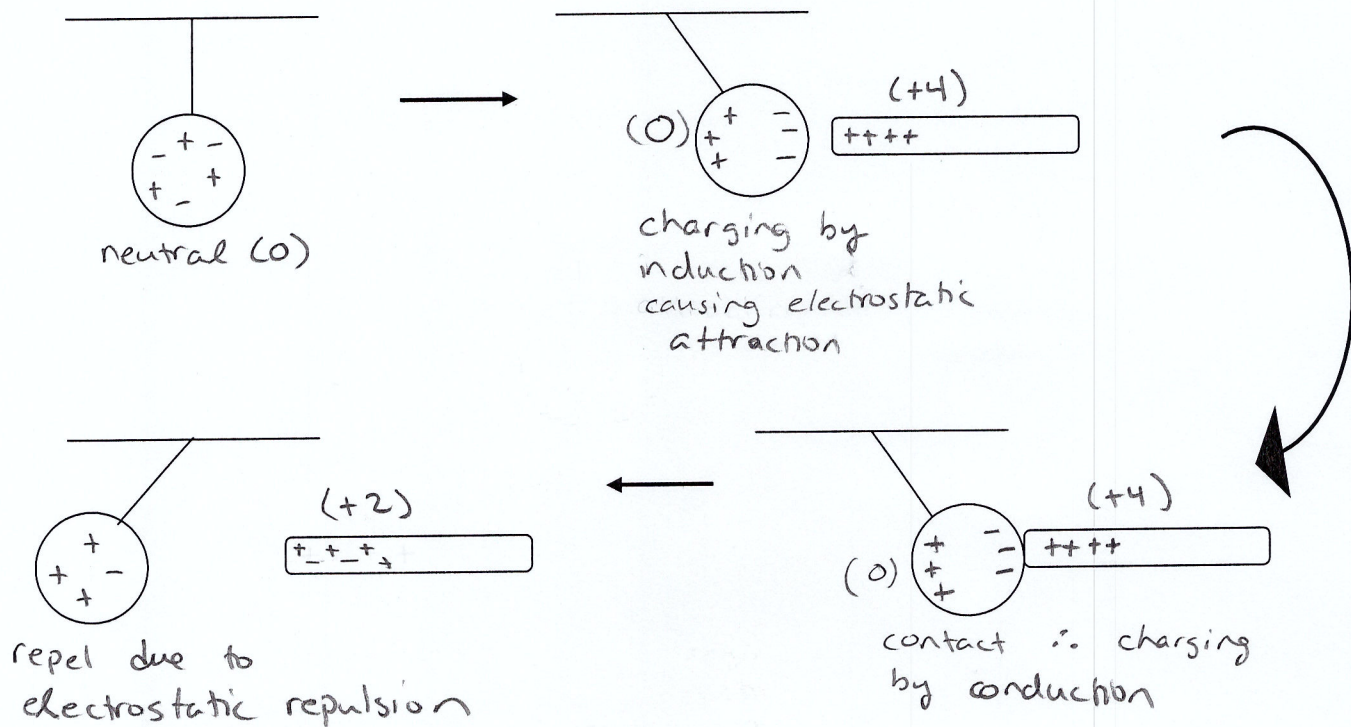 + - + - + -
neutral (0)
(+4)
(0)
+ + +
- - -
++++
charging by
induction
causing electrostatic
attraction
(+4)
(0)
+ + +
- - -
++++
contact ∴ charging
by conduction
(+2)
+ - + - + +
+ + - +
repel due to
electrostatic repulsion